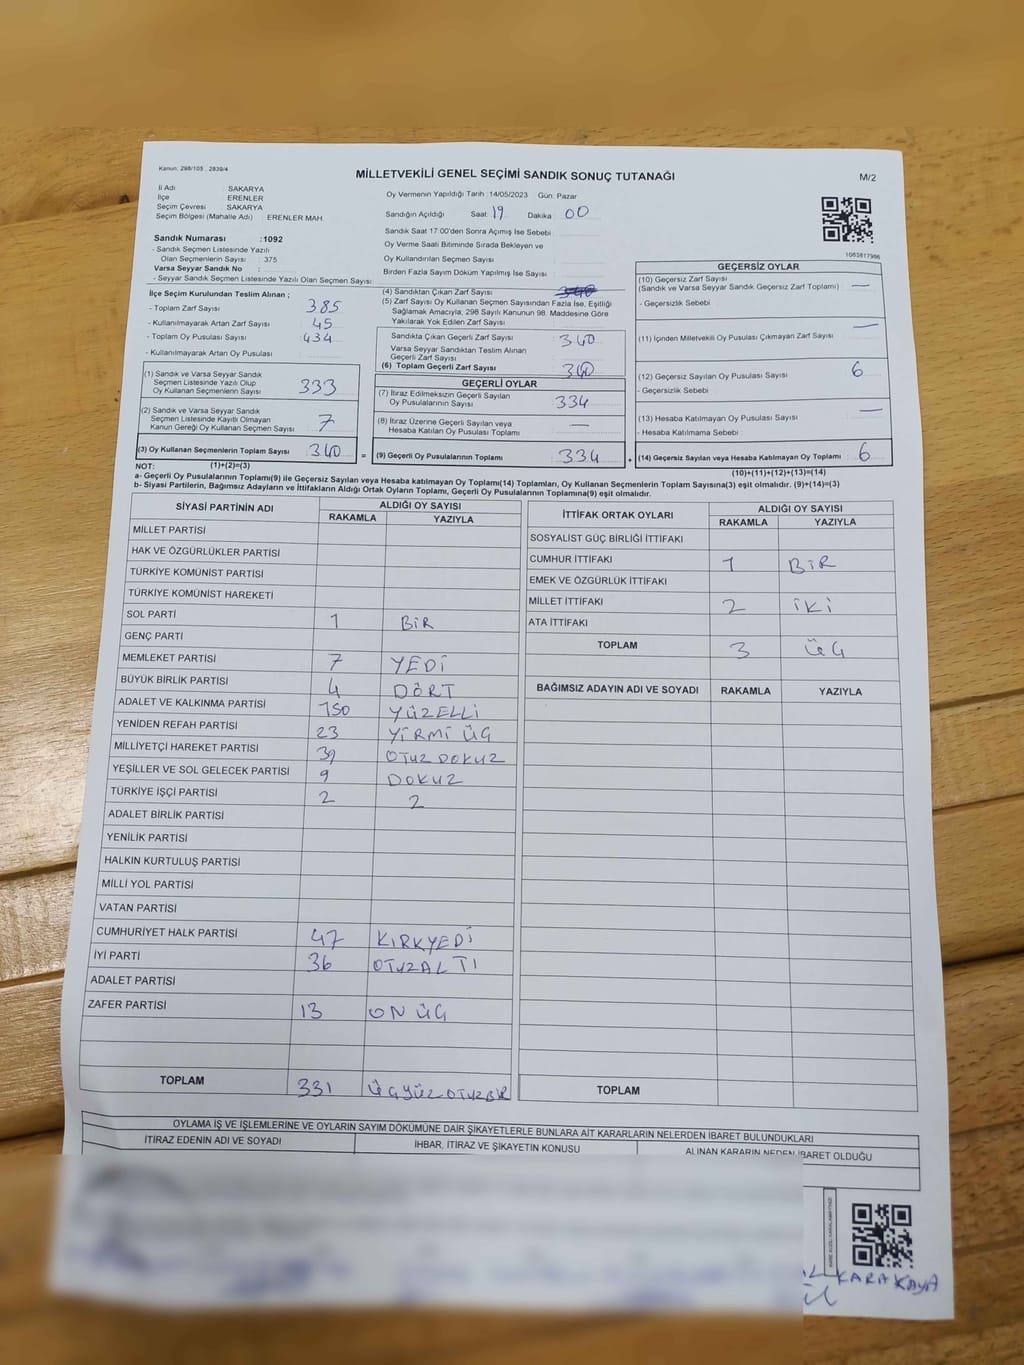 Kanun; 298/105 , 2839/4
MİLLETVEKİLİ GENEL SEÇİMİ SANDIK SONUÇ TUTANAĞI
M/2
İl Adı : SAKARYA
İlçe : ERENLER
Seçim Çevresi : SAKARYA
Seçim Bölgesi (Mahalle Adı) : ERENLER MAH.
Sandık Numarası :1092
- Sandık Seçmen Listesinde Yazılı
Olan Seçmenlerin Sayısı : 375
Varsa Seyyar Sandık No :
- Seyyar Sandık Seçmen Listesinde Yazılı Olan Seçmen Sayısı:
İlçe Seçim Kurulundan Teslim Alınan ;
- Toplam Zarf Sayısı : 385
- Kullanılmayarak Artan Zarf Sayısı : 45
- Toplam Oy Pusulası Sayısı : 434
- Kullanılmayarak Artan Oy Pusulası :
(1) Sandık ve Varsa Seyyar Sandık
Seçmen Listesinde Yazılı Olup
Oy Kullanan Seçmenlerin Sayısı : 333
(2) Sandık ve Varsa Seyyar Sandık
Seçmen Listesinde Kayıtlı Olmayan
Kanun Gereği Oy Kullanan Seçmen Sayısı : 7
(3) Oy Kullanan Seçmenlerin Toplam Sayısı : 340
(1)+(2)=(3)
Oy Vermenin Yapıldığı Tarih :14/05/2023 Gün: Pazar
Sandığın Açıldığı Saat: 19 Dakika : 00
Sandık Saat 17:00'den Sonra Açımış İse Sebebi :
Oy Verme Saati Bitiminde Sırada Bekleyen ve
Oy Kullandırılan Seçmen Sayısı :
Birden Fazla Sayım Döküm Yapılmış İse Sayısı :
(4) Sandıktan Çıkan Zarf Sayısı : 340
(5) Zarf Sayısı Oy Kullanan Seçmen Sayısından Fazla İse, Eşitliği
Sağlamak Amacıyla; 298 Sayılı Kanunun 98. Maddesine Göre
Yakılarak Yok Edilen Zarf Sayısı :
Sandıkta Çıkan Geçerli Zarf Sayısı : 340
Varsa Seyyar Sandıktan Teslim Alınan
Geçerli Zarf Sayısı :
(6) Toplam Geçerli Zarf Sayısı : 340
GEÇERLİ OYLAR
(7) İtiraz Edilmeksizin Geçerli Sayılan
Oy Pusulalarının Sayısı : 334
(8) İtiraz Üzerine Geçerli Sayılan veya
Hesaba Katılan Oy Pusulası Toplamı : —
= (9) Geçerli Oy Pusulalarının Toplamı : 334 +
1063817986
GEÇERSİZ OYLAR
(10) Geçersiz Zarf Sayısı
(Sandık ve Varsa Seyyar Sandık Geçersiz Zarf Toplamı) : —
- Geçersizlik Sebebi :
(11) İçinden Milletvekili Oy Pusulası Çıkmayan Zarf Sayısı : —
(12) Geçersiz Sayılan Oy Pusulası Sayısı : 6
- Geçersizlik Sebebi :
(13) Hesaba Katılmayan Oy Pusulası Sayısı : —
- Hesaba Katılmama Sebebi :
(14) Geçersiz Sayılan veya Hesaba Katılmayan Oy Toplamı : 6
(10)+(11)+(12)+(13)=(14)
NOT:
a- Geçerli Oy Pusulalarının Toplamı(9) ile Geçersiz Sayılan veya Hesaba Katılmayan Oy Toplamı(14) Toplamları, Oy Kullanan Seçmenlerin Toplam Sayısına(3) eşit olmalıdır. (9)+(14)=(3)
b- Siyasi Partilerin, Bağımsız Adayların ve İttifakların Aldığı Ortak Oyların Toplamı, Geçerli Oy Pusulalarının Toplamına(9) eşit olmalıdır.
SİYASİ PARTİNİN ADI ALDIĞI OY SAYISI
RAKAMLA YAZIYLA
MİLLET PARTİSİ
HAK VE ÖZGÜRLÜKLER PARTİSİ
TÜRKİYE KOMÜNİST PARTİSİ
TÜRKİYE KOMÜNİST HAREKETİ
SOL PARTİ 1 BİR
GENÇ PARTİ
MEMLEKET PARTİSİ 7 YEDİ
BÜYÜK BİRLİK PARTİSİ 4 DÖRT
ADALET VE KALKINMA PARTİSİ 150 YÜZELLİ
YENİDEN REFAH PARTİSİ 23 YİRMİ ÜÇ
MİLLİYETÇİ HAREKET PARTİSİ 39 OTUZ DOKUZ
YEŞİLLER VE SOL GELECEK PARTİSİ 9 DOKUZ
TÜRKİYE İŞÇİ PARTİSİ 2 2
ADALET BİRLİK PARTİSİ
YENİLİK PARTİSİ
HALKIN KURTULUŞ PARTİSİ
MİLLİ YOL PARTİSİ
VATAN PARTİSİ
CUMHURİYET HALK PARTİSİ 47 KIRKYEDİ
İYİ PARTİ 36 OTUZALTI
ADALET PARTİSİ
ZAFER PARTİSİ 13 ON ÜÇ
TOPLAM 331 ÜÇYÜZOTUZBİR
İTTİFAK ORTAK OYLARI ALDIĞI OY SAYISI
RAKAMLA YAZIYLA
SOSYALİST GÜÇ BİRLİĞİ İTTİFAKI
CUMHUR İTTİFAKI 1 BİR
EMEK VE ÖZGÜRLÜK İTTİFAKI
MİLLET İTTİFAKI 2 İKİ
ATA İTTİFAKI
TOPLAM 3 ÜÇ
BAĞIMSIZ ADAYIN ADI VE SOYADI RAKAMLA YAZIYLA
TOPLAM
OYLAMA İŞ VE İŞLEMLERİNE VE OYLARIN SAYIM DÖKÜMÜNE DAİR ŞİKAYETLERLE BUNLARA AİT KARARLARIN NELERDEN İBARET BULUNDUKLARI
İTİRAZ EDENİN ADI VE SOYADI İHBAR, İTİRAZ VE ŞİKAYETİN KONUSU ALINAN KARARIN NEDEN İBARET OLDUĞU
KARAKAYA